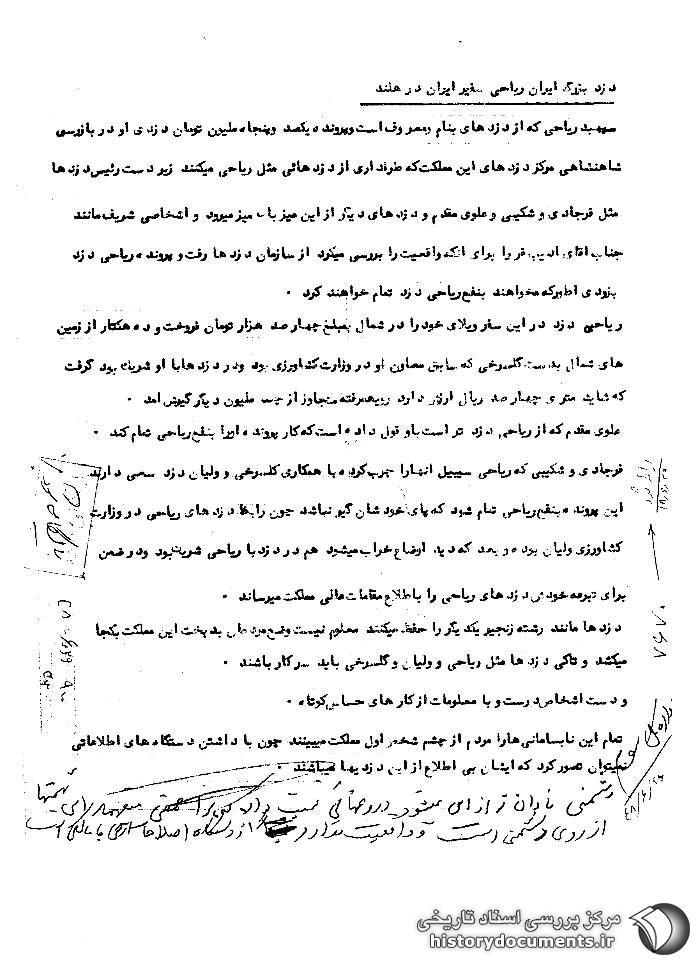 دزد بزرگ ایران ریاحی سفیر ایران در هلند
سپهبد ریاحی که از دزد های بنام ومعروف است وپرونده یکصد وپنجاه ملیون تومان دزدی او در بازرسی
شاهنشاهی مرکز دزد های این مملکت که طرفداری از دزد هائی مثل ریاحی میکنند زیر دست رئیس دزد ها
مثل فرجادی و شکیبی و علوی مقدم و دزد های دیگر از این میز بآن میز میرود و اشخاصی شریف مانند
جناب اقای ادیب فر را برای انکه واقعیت را بررسی میکرد از سازمان دزد ها رفت و پرونده ریاحی دزد
بزودی انطورکه میخواهند بنفع ریاحی دزد تمام خواهند کرد ۰
ریاحی دزد در این سفر ویلای خود را در شمال بمبلغ چهار صد هزار تومان فروخت و ده هکتار از زمین
های شمال بدست گلسرخی که سابق معاون او در وزارت کشاورزی بود ودر دزد هابا او شریک بود گرفت
که شاید متری چهار صد ریال ارزش دارد رویهمرفته متجاوز از چند ملیون دیگر گیرش امد ۰
علوی مقدم که از ریاحی دزد تر است باو قول داده است که کار پرونده اورا بنفع ریاحی تمام کند ۰
فرجادی و شکیبی که ریاحی سیبیل انهارا چرب کرده با همکاری گلسرخی و ولیان دزد سعی دارند
این پرونده بنفع ریاحی تمام شود که پای خود شان گیر نباشد چون رابط دزد های ریاحی در وزارت
کشاورزی ولیان بوده و بعد که دید اوضاع خراب میشود هم در دزد با ریاحی شریک بود ودر ضمن
برای تبرعه خودش دزد های ریاحی را باطلاع مقامات عالی مملکت میرساند ۰
دزد ها مانند رشته زنجیر یکدیگر را حفظ میکنند معلوم نیست وضع مردمان بد بخت این مملکت بکجا
میکشد و تاکی دزد ها مثل ریاحی و ولیان و گلسرخی باید سر کار باشند ۰
و دست اشخاص درست و با معلومات از کار های حساس کوتاه ۰
تمام این نابسامانی هارا مردم از چشم شخص اول مملکت میبینند چون با داشتن دستگاه های اطلاعاتی
نمیتوان تصور کرد که ایشان بی اطلاع از این دزدیها میباشند ۰
از روی دشمنی است و واقعیت ندارد
مرکز بررسی اسناد تاریخی
historydocuments.ir